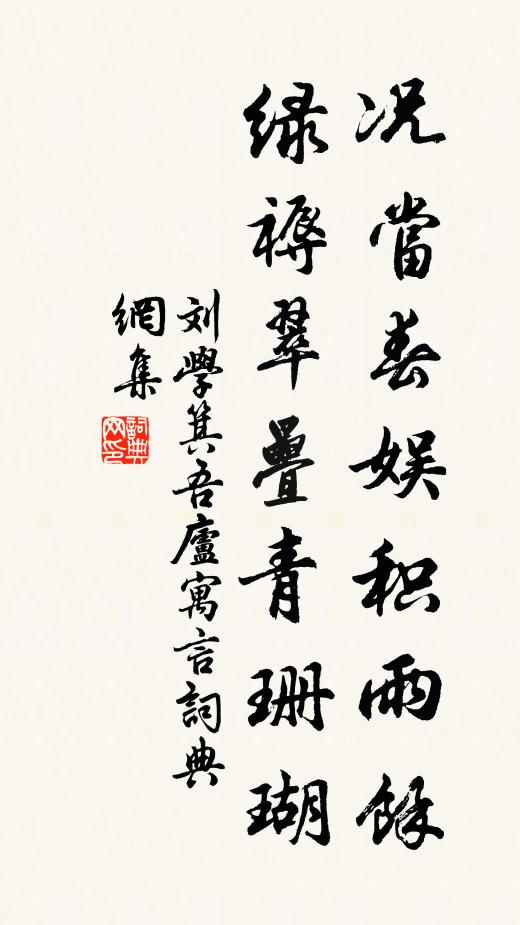 况當春娱积雨餘
绿蓐翠疊青珊瑚
刘學箕吾廬寓言詞典
網集
詞典
网印